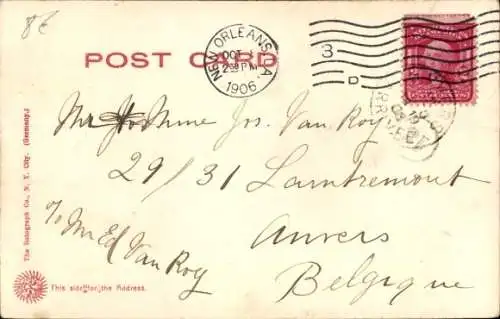 86
POST CARD
NEW ORLEANS, LA.
OCT 1
2 30 PM
1906
3
D
Mr & Mme Jos. Van Roy
29/31 Lamtremout
To Mr Ed Van Roy
Anvers
Belgique
The Rotograph Co., N. Y. City. (Germany.)
This side for the Address.